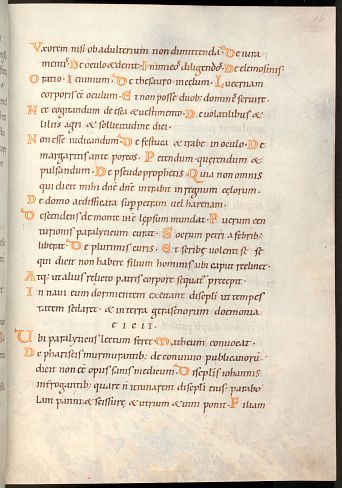 Uxorem nisi ob adulterium non dimittenda. De iura
mentis. De oculo & dente. Inimicos diligendos. De elemosinis.
Oratio. Ieiunium. De thesauro in cęlum. Lucernam
corporis eẽ oculum. Et non posse duob; dominis seruire.
Nec cogitandum de esca & uestimento. De uolatilibus &
liliis agri & sollicitudine diei.
Non esse iudicandum. De festuca & trabe in oculo. De
margaritis ante porcos. Petendum querendum &
pulsandum. De pseudo prophetis. Quia non omnis
qui dicit mihi dnẽ dnẽ intrabit in regnum cęlorum.
De domo aedificata sup petram uel harenam.
Descendens de monte lepsum mundat. Puerum cen
turionis paralyticum curat. Socrum petri a febrib;
liberat. De plurimis curis. Et scribę uolenti se sequi
dicit non habere filium hominis ubi caput reclinet.
Atq; ut alius relicto patris corpore sequatur precepit.
In naui eum dormientem excitant discipli ut tempes
tatem sedaret. & in terra gerasenorum docmonia
eicit.
Ubi paralyticus lectum feret. Matheum conuocat.
De phariseis murmurantib; de conuiuio publicanorũ
dicit non eẽ opus sanis medicum. Discipulis iohannis
interrogantib; quare non ieiunarent discipli eius. parabo
lam panni & scissurę & utrium & uini ponit. Filiam